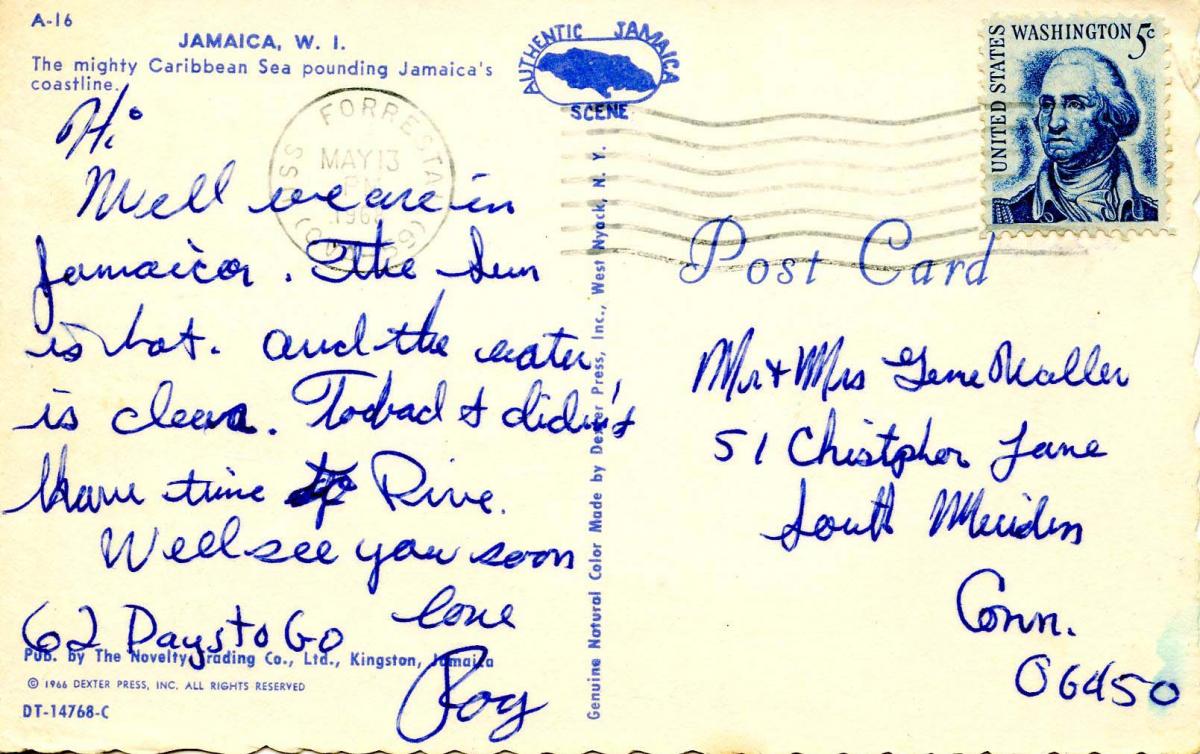 A-16
JAMAICA, W. I.
The mighty Caribbean Sea pounding Jamaica's
coastline.
AUTHENTIC JAMAICA
SCENE
USS FORRESTAL
MAY 13
PM
1968
UNITED STATES
WASHINGTON 5c
Hi
Well we are in
Jamaica. The Sun
is hot. and the water
is clear. To bad I didn't
have time to Dive.
Well see you soon
love
62 Days to Go
Roy
Pub. by The Novelty Trading Co., Ltd., Kingston, Jamaica
© 1966 DEXTER PRESS, INC. ALL RIGHTS RESERVED
DT-14768-C
Genuine Natural Color Made by Dexter Press, Inc., West Nyack, N. Y.
Post Card
Mr + Mrs Gene Waller
51 Chistpher Lane
South Meriden
Conn.
06450